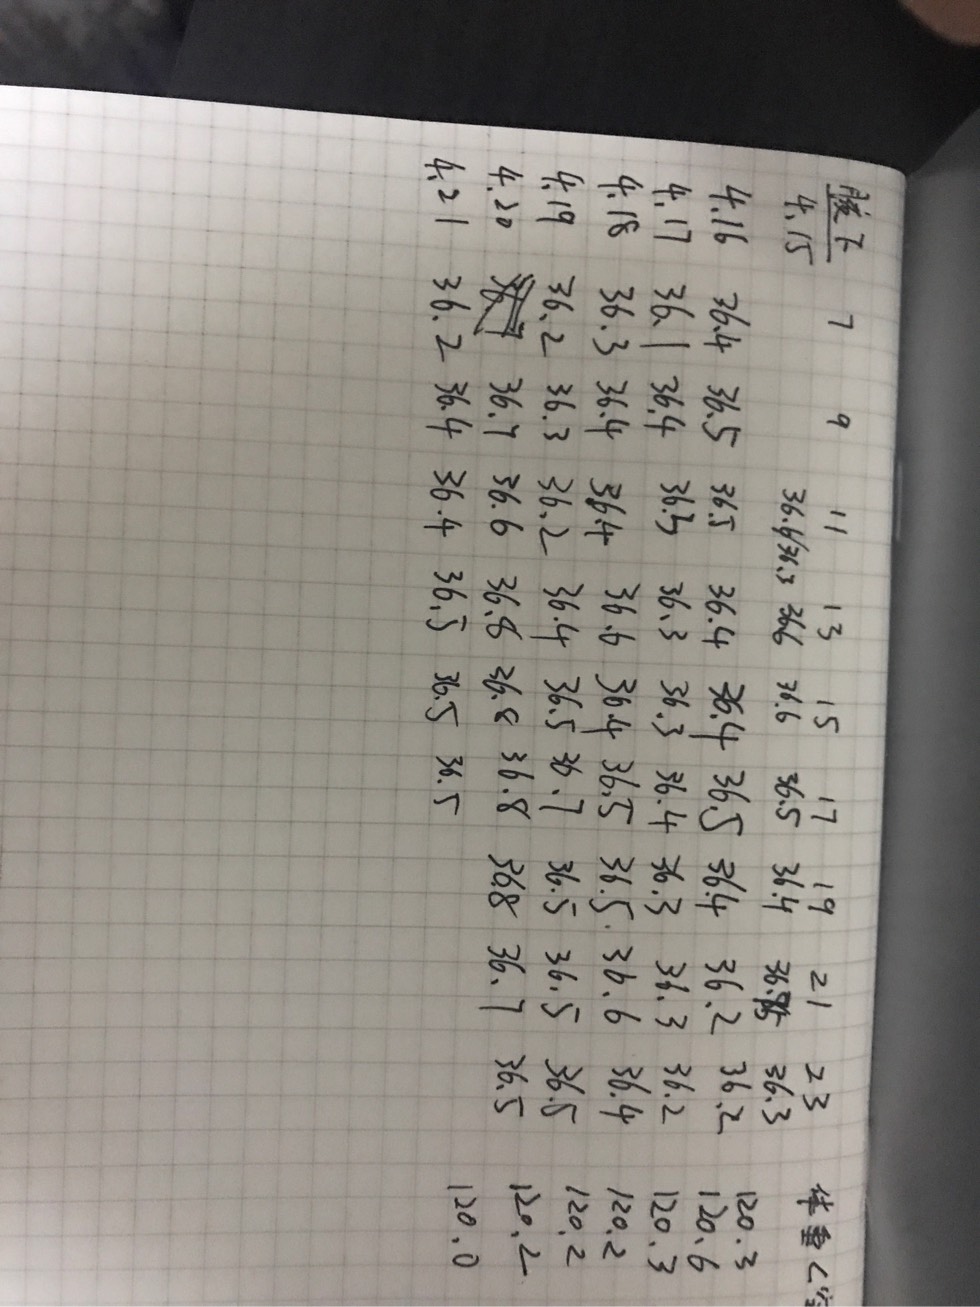 腋下 7 9 11 13 15 17 19 21 23 体重
4.15 36.6/36.3 36.6 36.6 36.5 36.4 36.3 120.3
4.16 36.4 36.5 36.5 36.4 36.4 36.5 36.4 36.2 36.2 120.6
4.17 36.1 36.4 36.3 36.3 36.3 36.4 36.3 36.3 36.2 120.3
4.18 36.3 36.4 36.4 36.6 36.4 36.5 36.5. 36.6 36.4 120.2
4.19 36.2 36.3 36.2 36.4 36.5 36.7 36.5 36.5 36.5 120.2
4.20 36.7 36.6 36.8 36.8 36.8 36.8 36.7 36.5 120.2
4.21 36.2 36.4 36.4 36.5 36.5 36.5 120.0